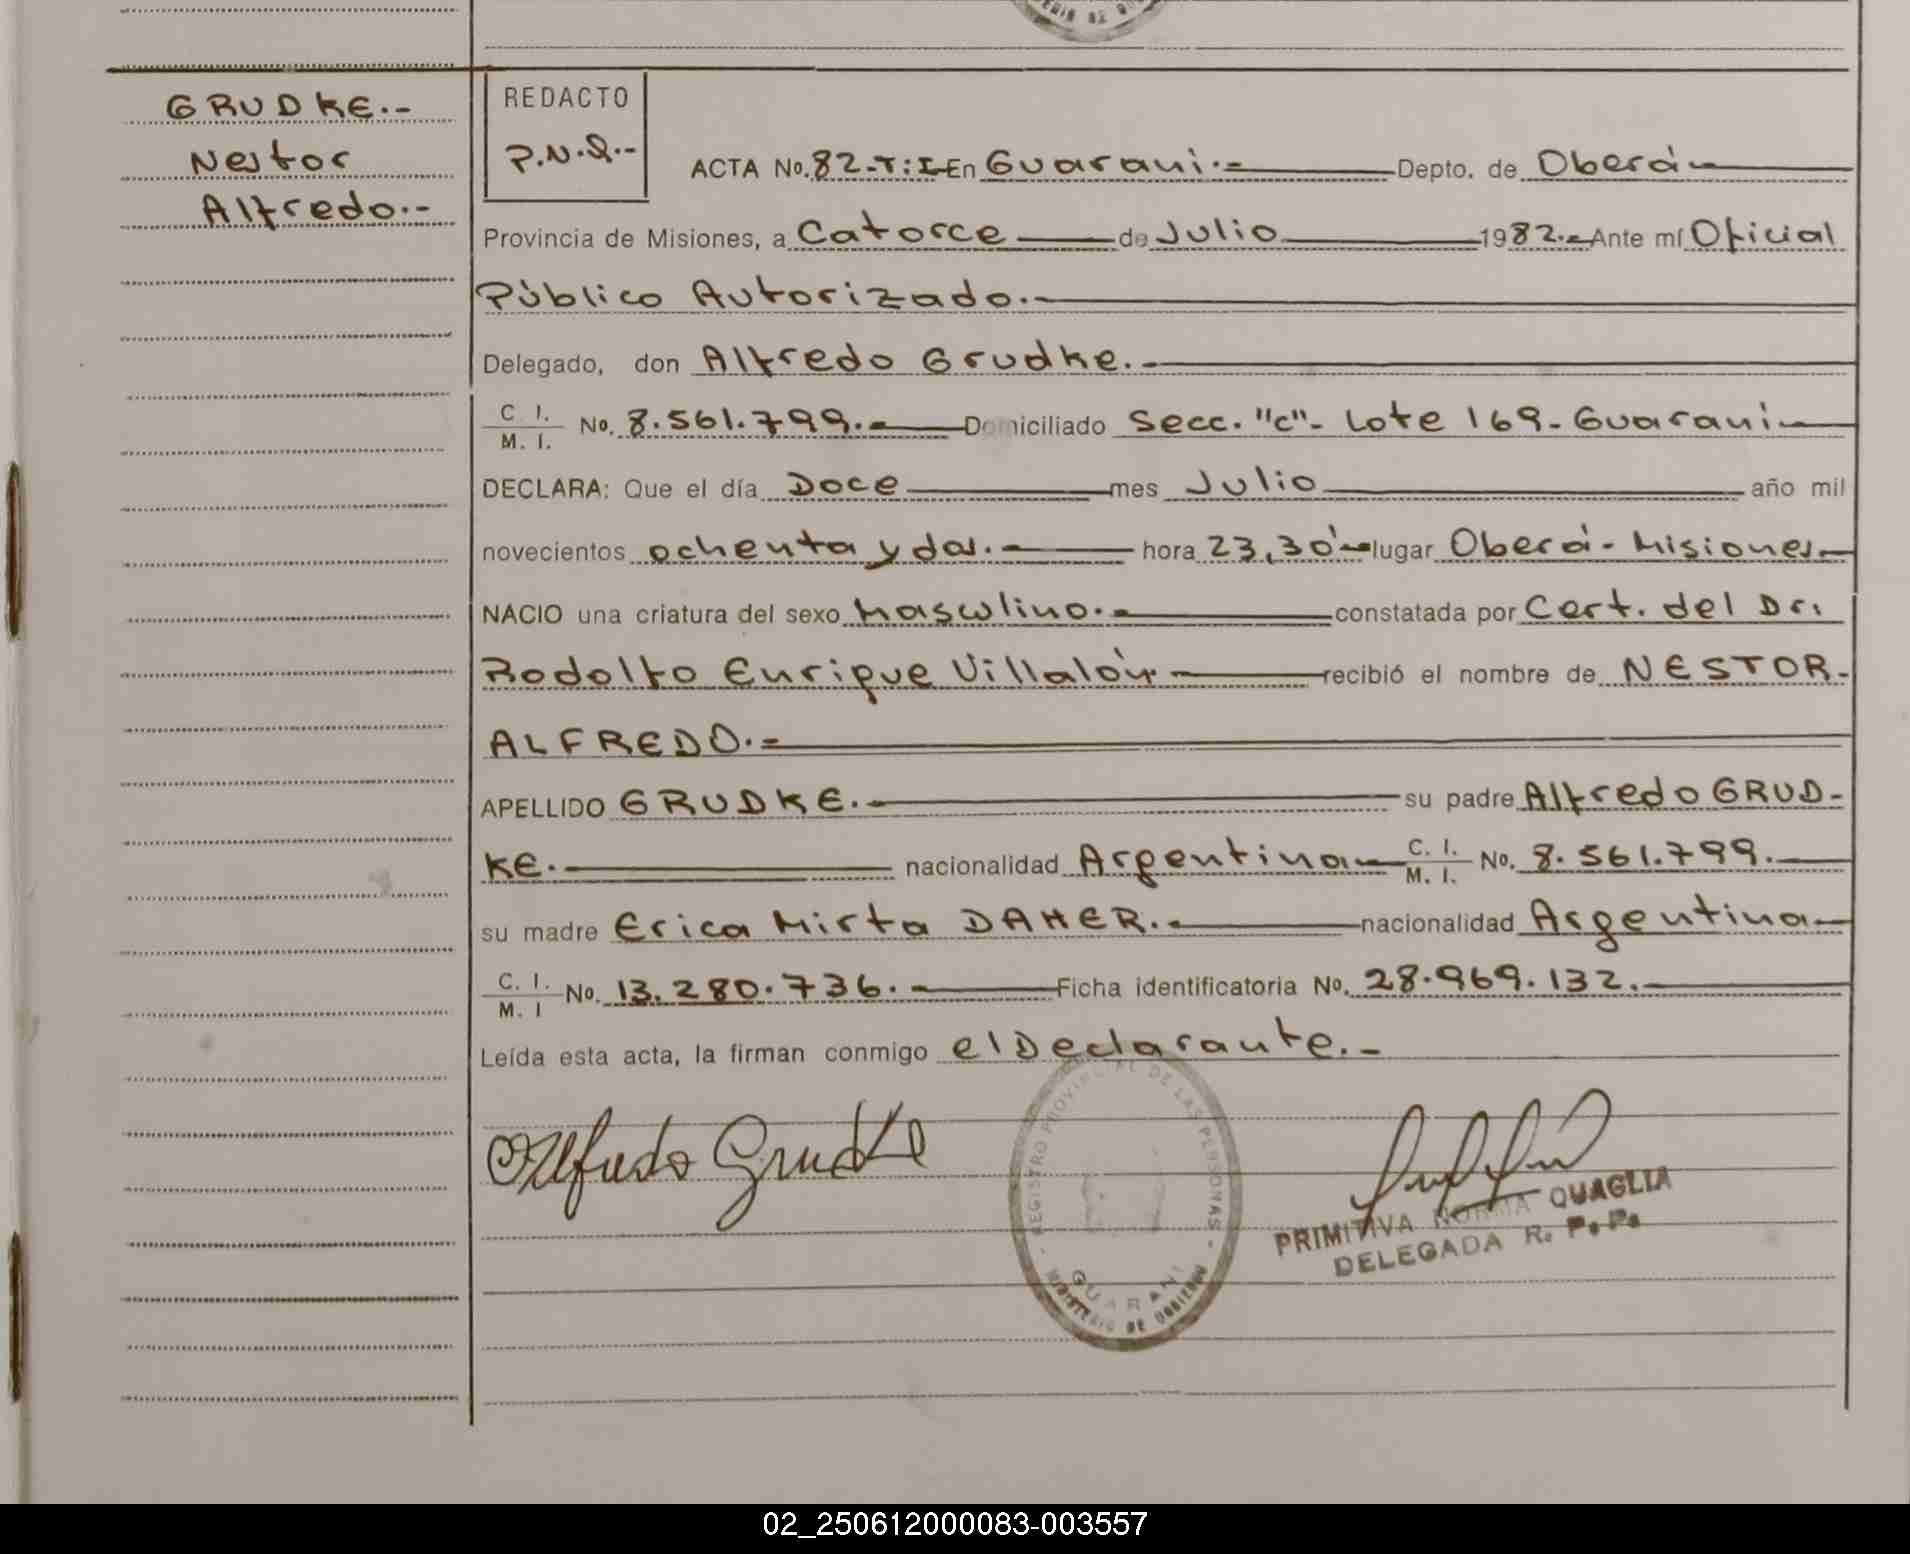 GRUDKE.-
Nestor
Alfredo.-
REDACTO
P.N.Q.-
ACTA No. 82-T:I- En Guaraní.- Depto. de Oberá-
Provincia de Misiones, a Catorce de Julio 1982.- Ante mí Oficial
Público Autorizado.-
Delegado, don Alfredo Grudke.-
C. I. / M. I. No. 8.561.799.- Domiciliado Secc. "C"- Lote 169- Guaraní-
DECLARA: Que el día Doce mes Julio año mil
novecientos ochenta y dos.- hora 23,30'- lugar Oberá- Misiones-
NACIO una criatura del sexo Masculino.- constatada por Cert. del Dr.
Rodolfo Enrique Villalón.- recibió el nombre de NESTOR-
ALFREDO.-
APELLIDO GRUDKE.- su padre Alfredo GRUD-
KE.- nacionalidad Argentina- C. I. / M. I. No. 8.561.799.-
su madre Erica Mirta DAHER.- nacionalidad Argentina-
C. I. / M. I No. 13.280.736.- Ficha identificatoria No. 28.969.132.-
Leída esta acta, la firman conmigo el Declarante.-
Alfredo Grudke
REGISTRO PROVINCIAL DE LAS PERSONAS
GUARANI
MINISTERIO DE GOBIERNO
PRIMITIVA NORMA QUAGLIA
DELEGADA R. P. P.
02_250612000083-003557